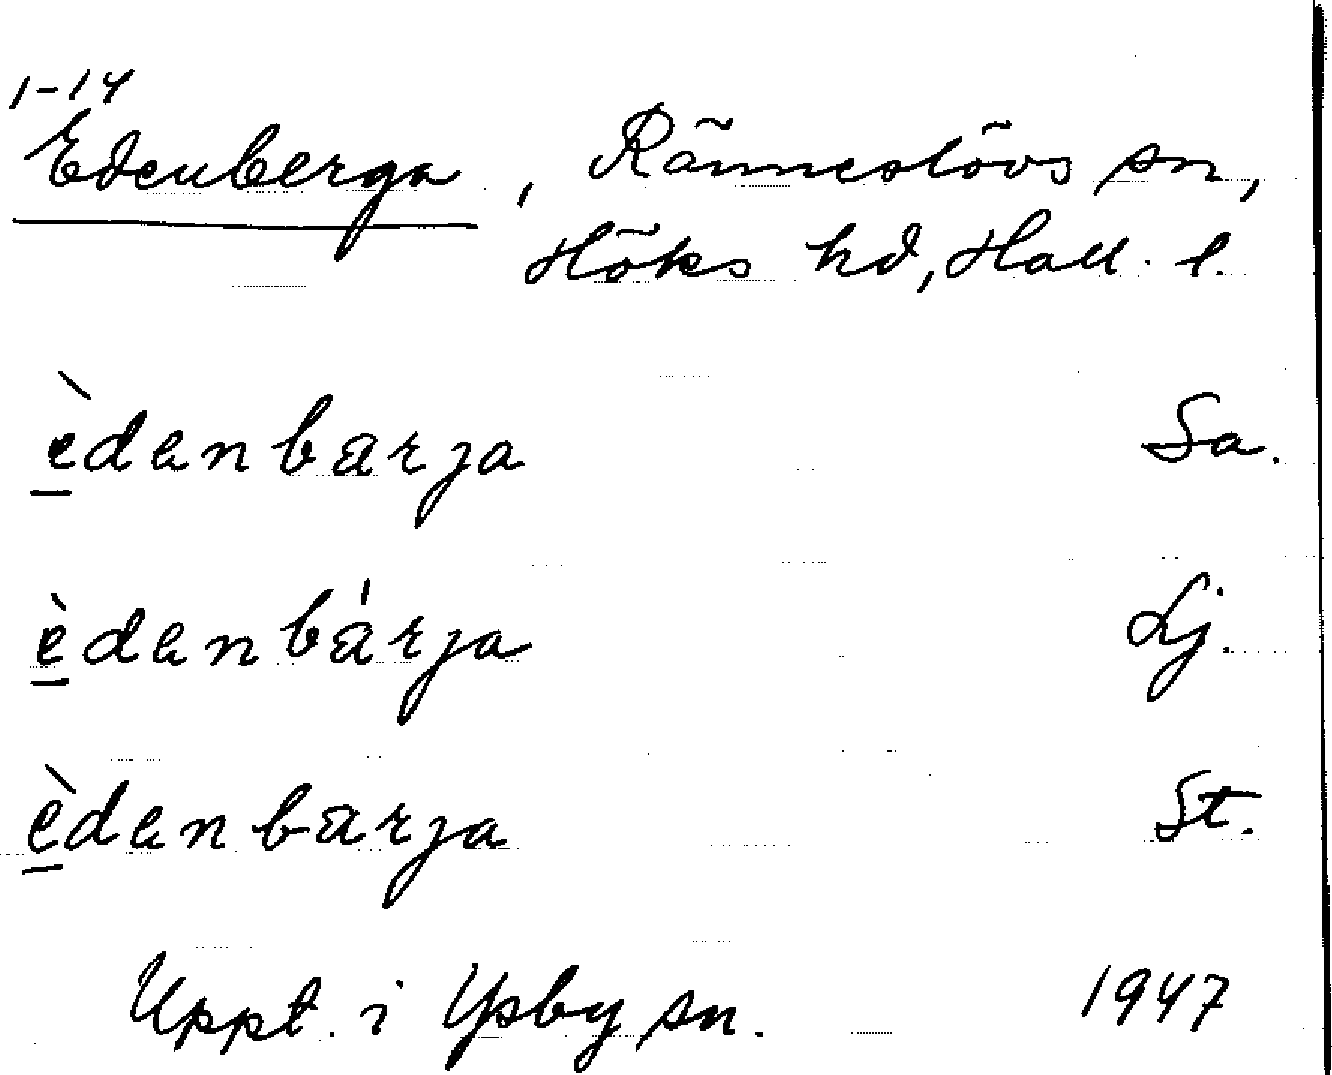 1-14
Edenberga, Ränneslövs sn,
Höks hd, Hall. l.
èdenbarja Sa.
èdenbárja Lj.
èdenbarja St.
Uppt. i Ysby sn. 1947